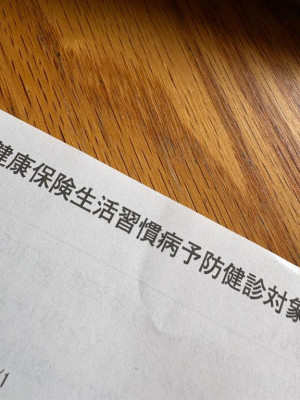 健康保険生活習慣病予防健診対象
/1